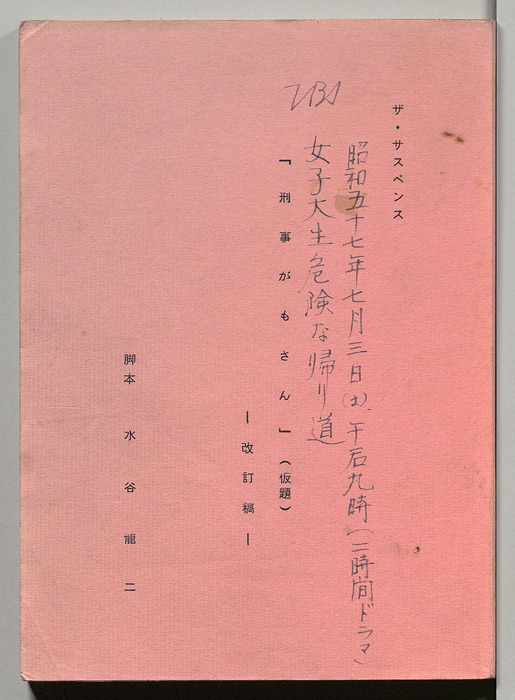 ザ・サスペンス
昭和五十七年七月三日(土)午后九時(二時間ドラマ)
TBS
女子大生危険な帰り道
『刑事がもさん』(仮題)
―改訂稿―
脚本 水谷龍二